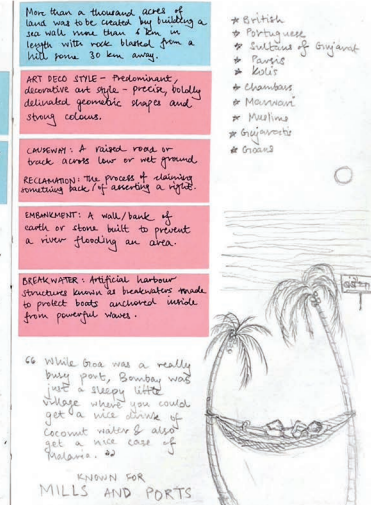 More than a thousand acres of
land was to be created by building a
sea wall more than 6 km in
length with rock blasted from a
hill some 30 km away.
ART DECO STYLE - Predominant,
decorative art style - precise, boldly
delineated geometric shapes and
strong colours.
CAUSEWAY: A raised road or
track across low or wet ground
RECLAMATION: The process of claiming
something back/of asserting a right.
EMBANKMENT: A wall/bank of
earth or stone built to prevent
a river flooding an area.
BREAKWATER: Artificial harbour
structures known as breakwaters made
to protect boats anchored inside
from powerful waves.
“ While Goa was a really
busy port, Bombay was
just a sleepy little
village where you could
get a nice drink of
coconut water & also
get a nice case of
Malaria. ”
KNOWN FOR
MILLS AND PORTS
* British
* Portuguese
* Sultans of Gujarat
* Parsis
* Kolis
* Chambars
* Marwari
* Muslims
* Gujaratis